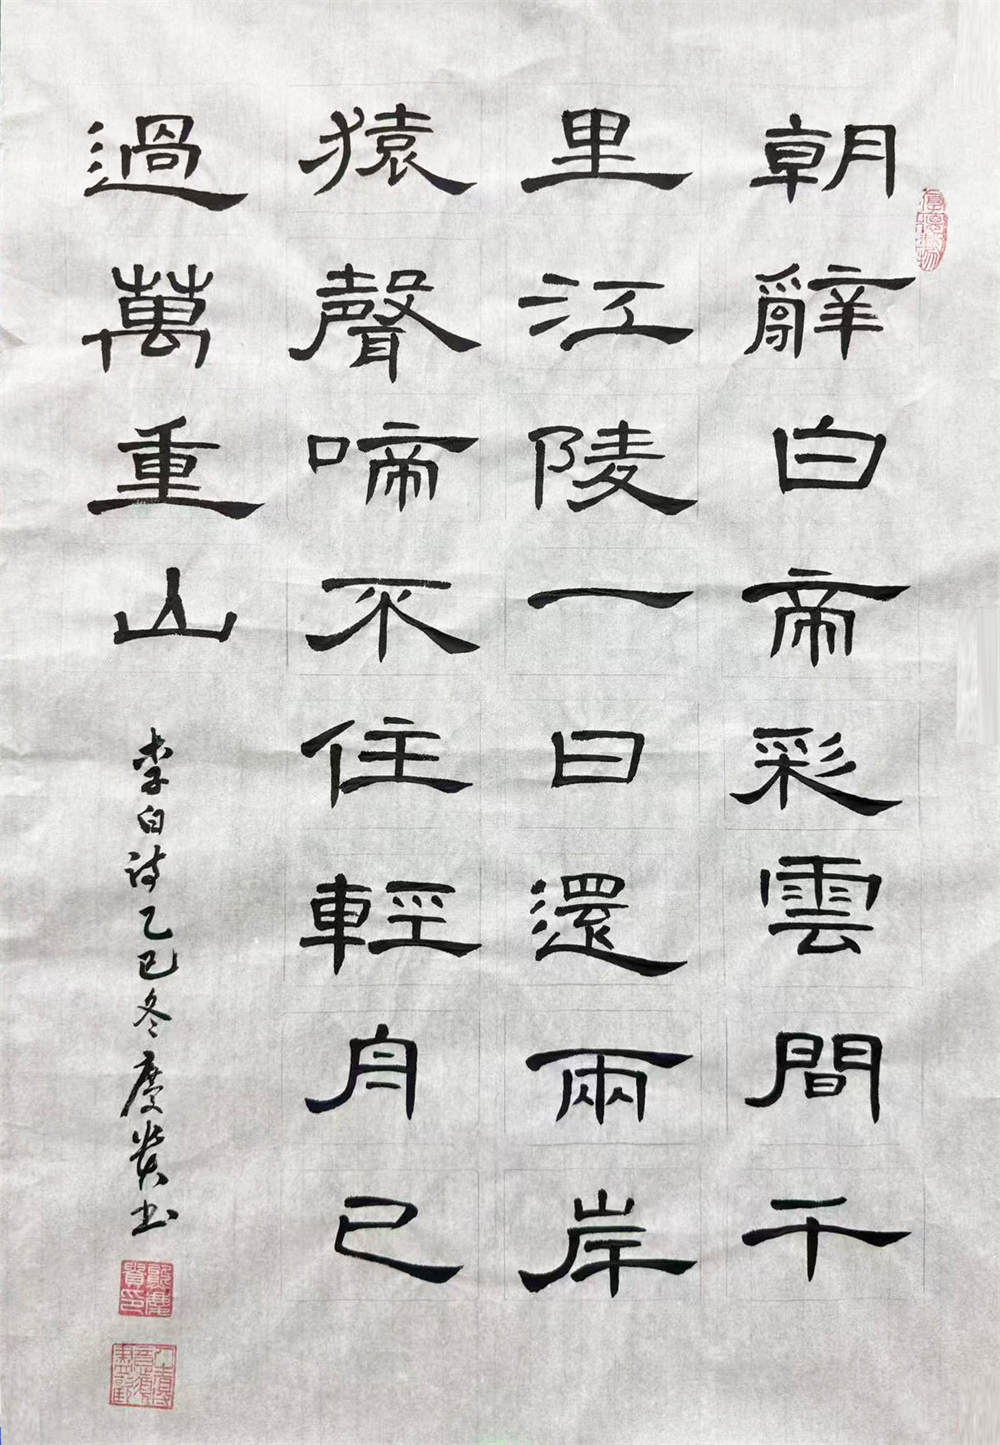 朝辭白帝彩雲間千
里江陵一日還兩岸
猿聲啼不住輕舟已
過萬重山
李白詩乙巳冬慶貴书
厚德載物